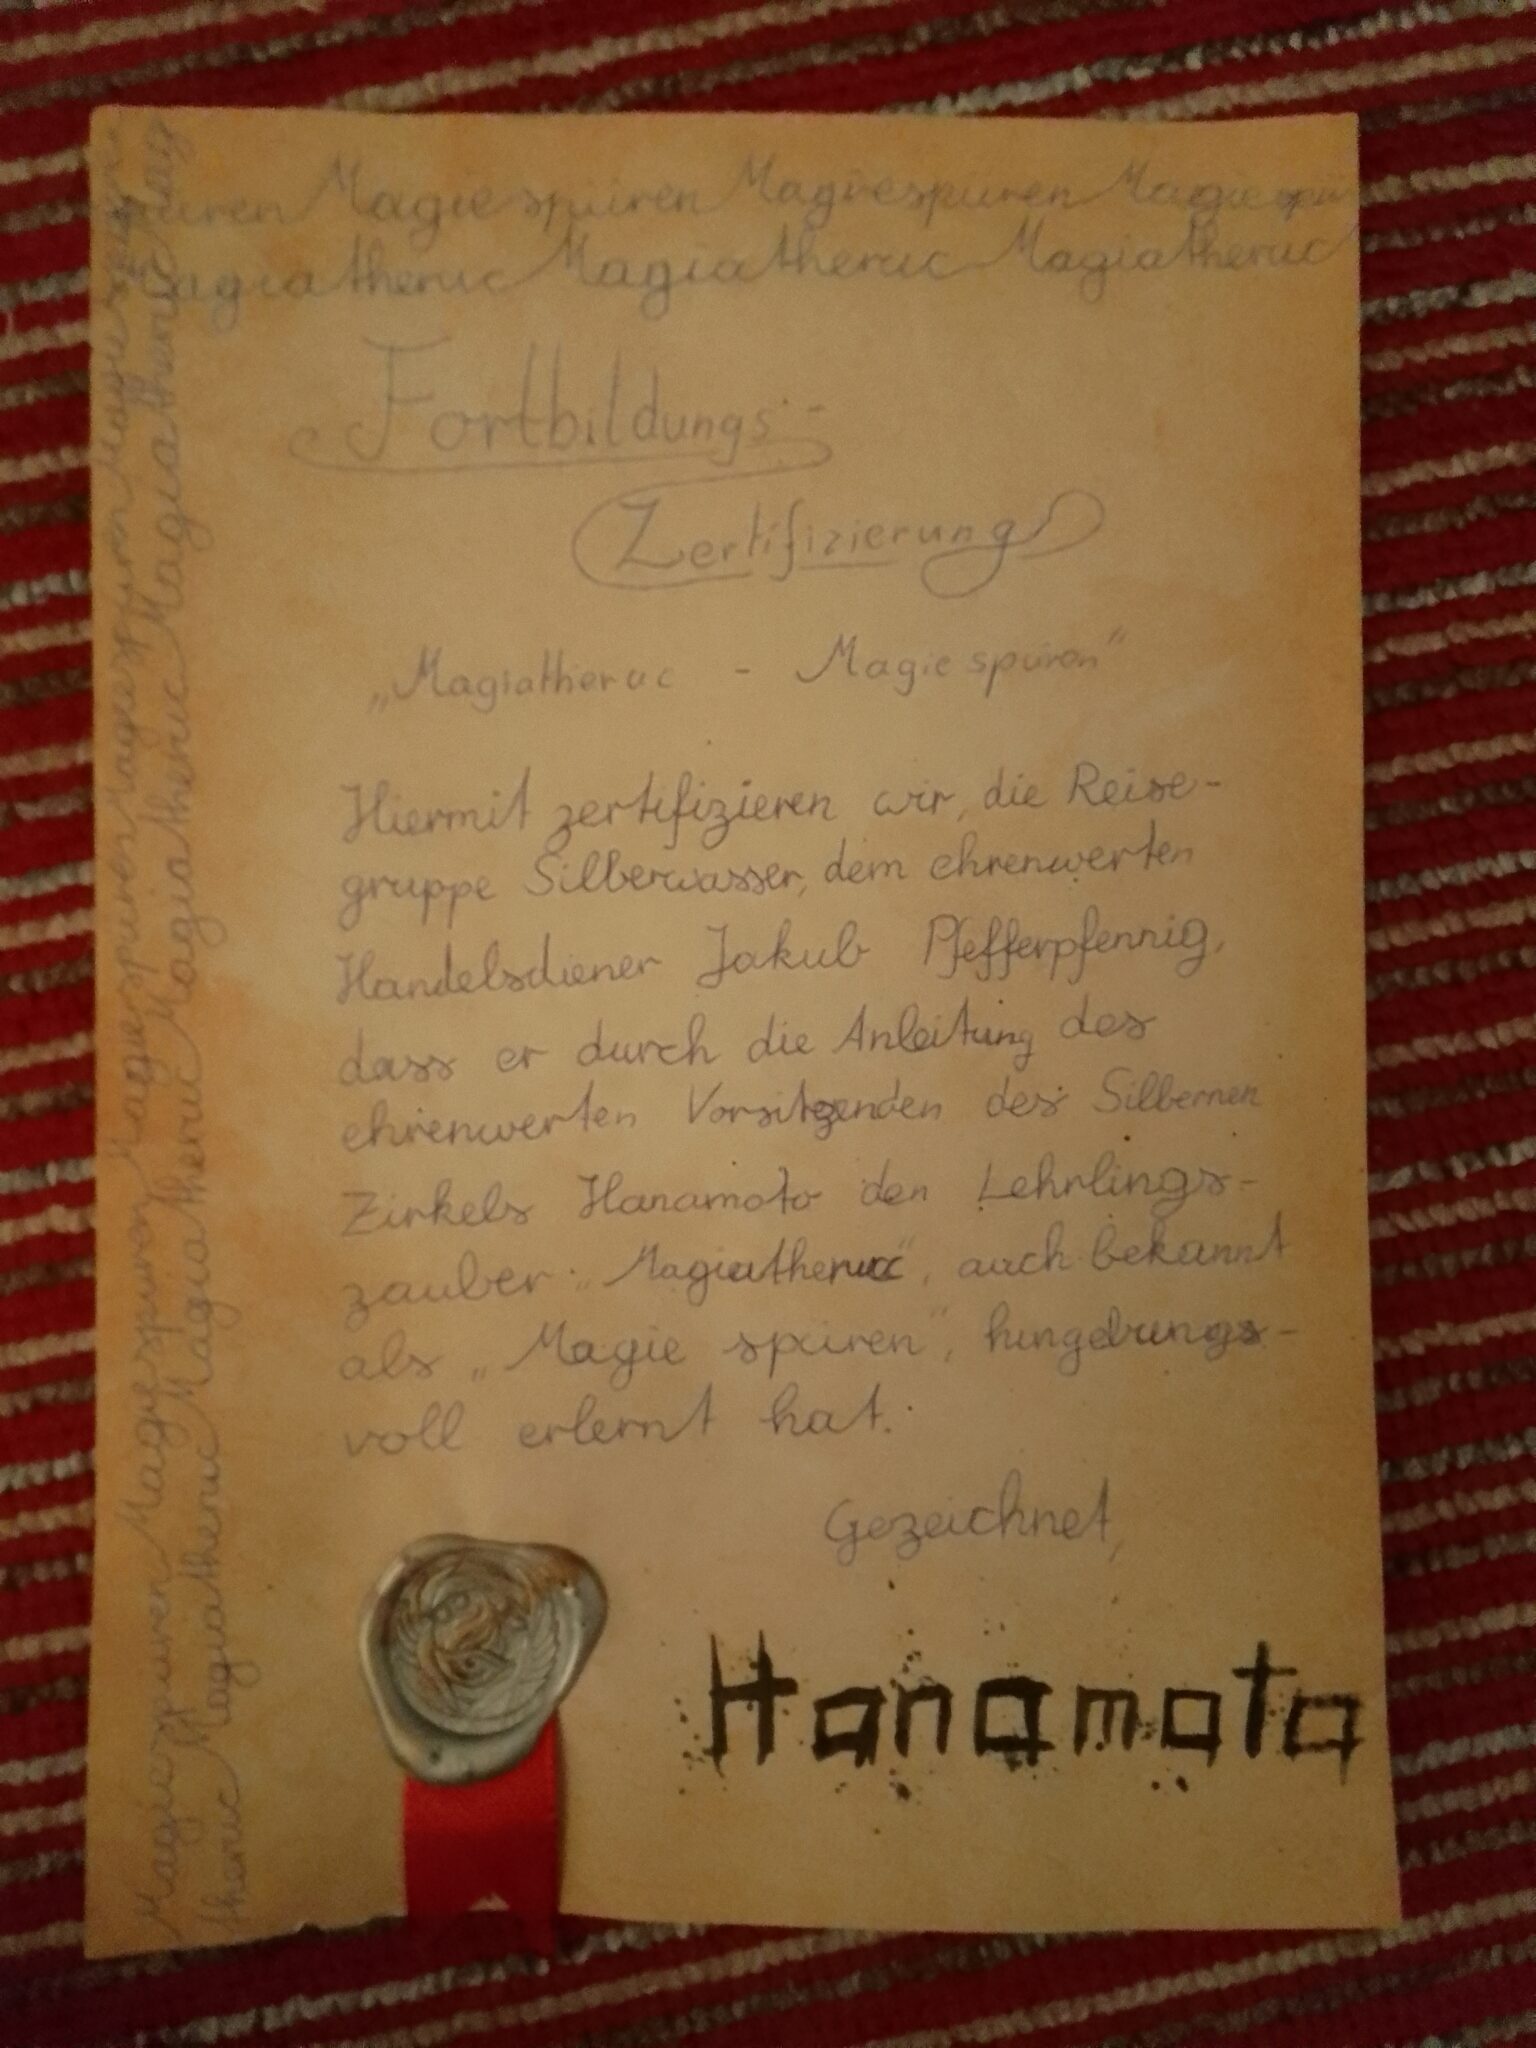 uren Magiespüren Magiespüren Magiespür
agiatheruc Magiatheruc Magiatheruc
Fortbildungs-
Zertifizierung
„Magiatheruc - Magie spüren“
Hiermit zertifizieren wir, die Reise-
gruppe Silberwasser, dem ehrenwerten
Handelsdiener Jakub Pfefferpfennig,
dass er durch die Anleitung des
ehrenwerten Vorsitzenden des Silbernen
Zirkels Hanamoto den Lehrlings-
zauber „Magiatheruc“, auch bekannt
als „Magie spüren“, hungdrungs-
voll erlernt hat.
Gezeichnet,
Hanamoto
Magiespüren Magiespüren Magiespüren Magiespüren Magiespüren Magiespüren
theruc Magiatheruc Magiatheruc Magiatheruc Magiatheruc Magiatheruc Magiatheruc Mag